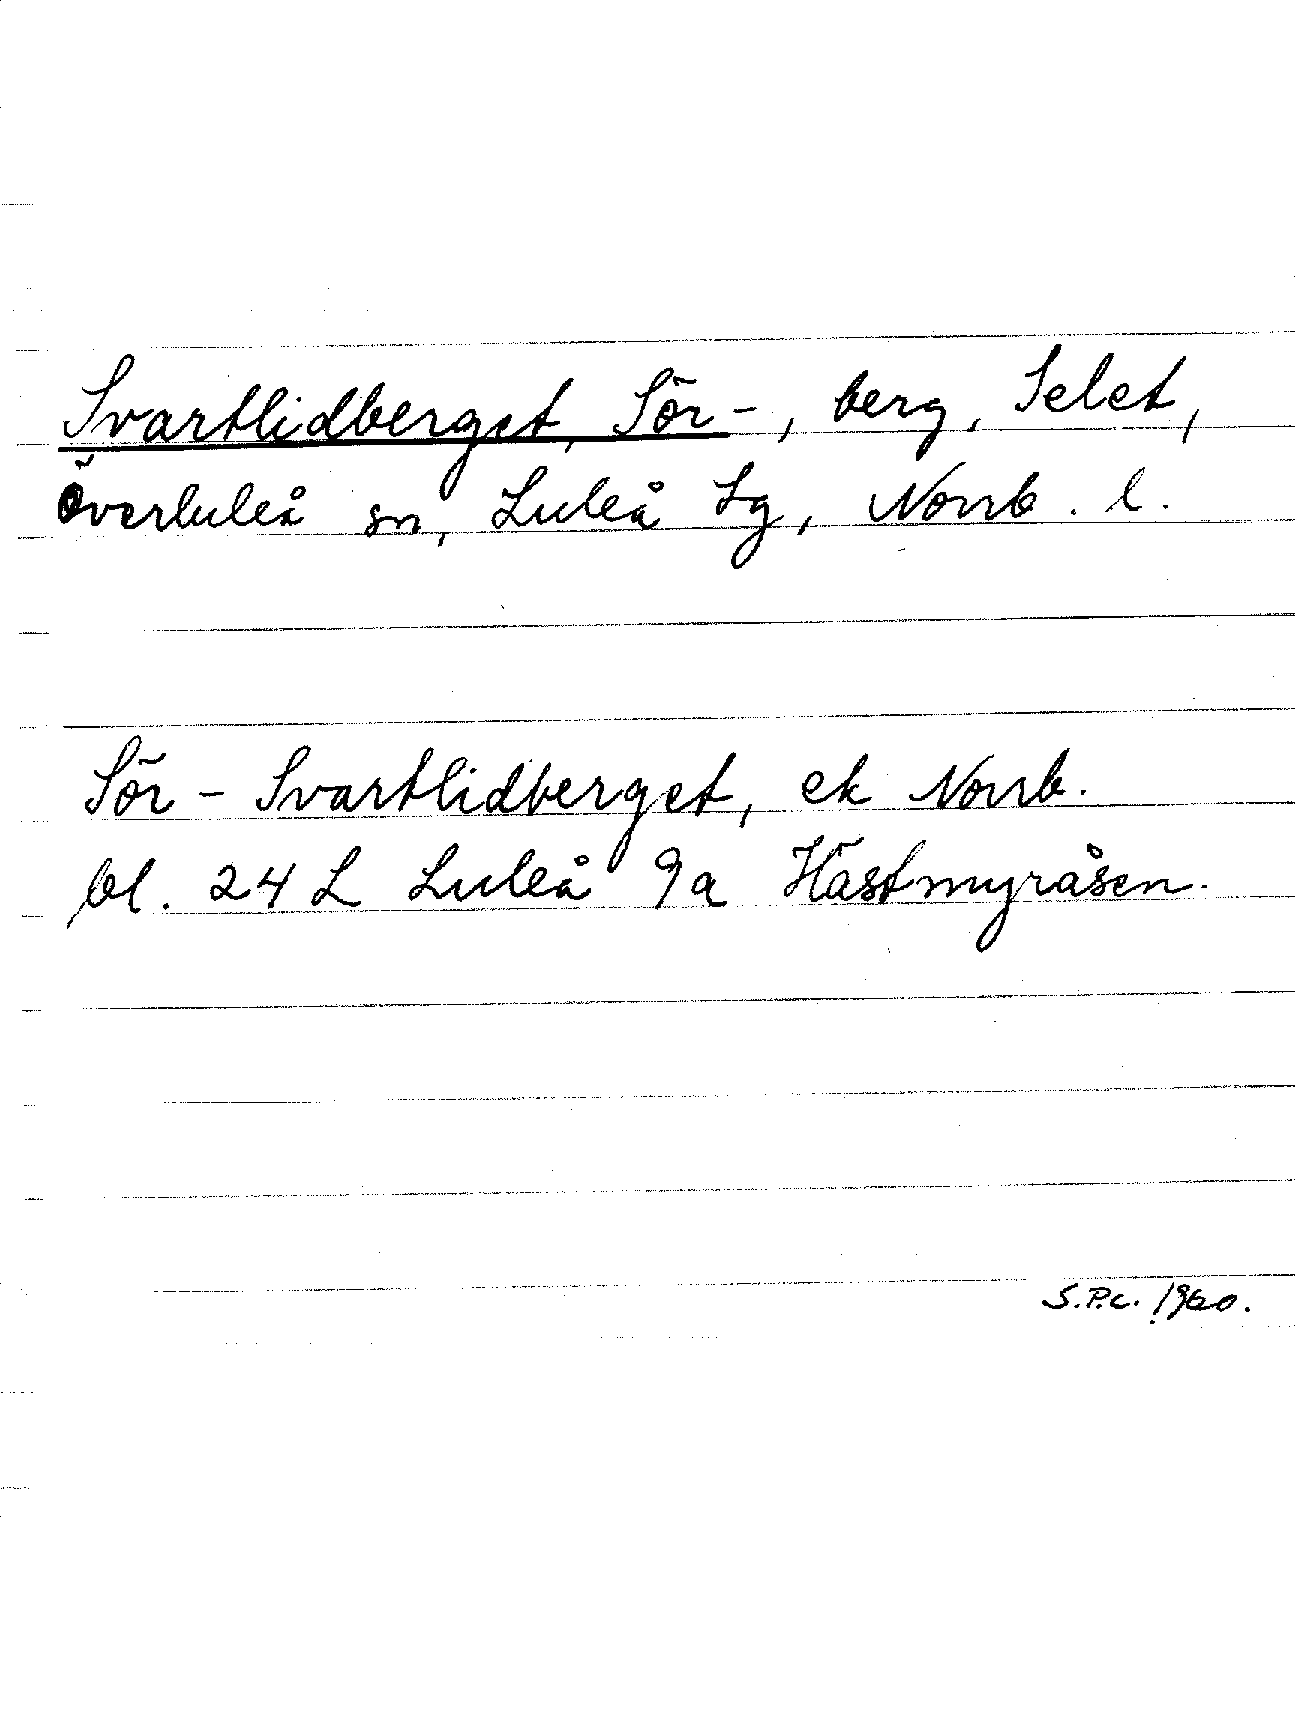 Svartlidberget, Sör-, berg, Selet,
Överluleå sn, Luleå tg, Norrb. l.
Sör-Svartlidberget, ek Norrb.
bl. 24 L Luleå 9a Hästmyråsen.
S.P.C. 1960.